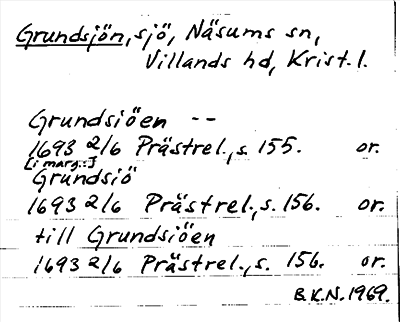 Grundsjön, sjö, Näsums sn,
Villands hd, Krist. l.
Grundsiöen --
1693 2/6 Prästrel., s. 155. or.
[i marg.:]
Grundsiö
1693 2/6 Prästrel., s. 156. or.
till Grundsiöen
1693 2/6 Prästrel., s. 156. or.
B.K.N. 1969.